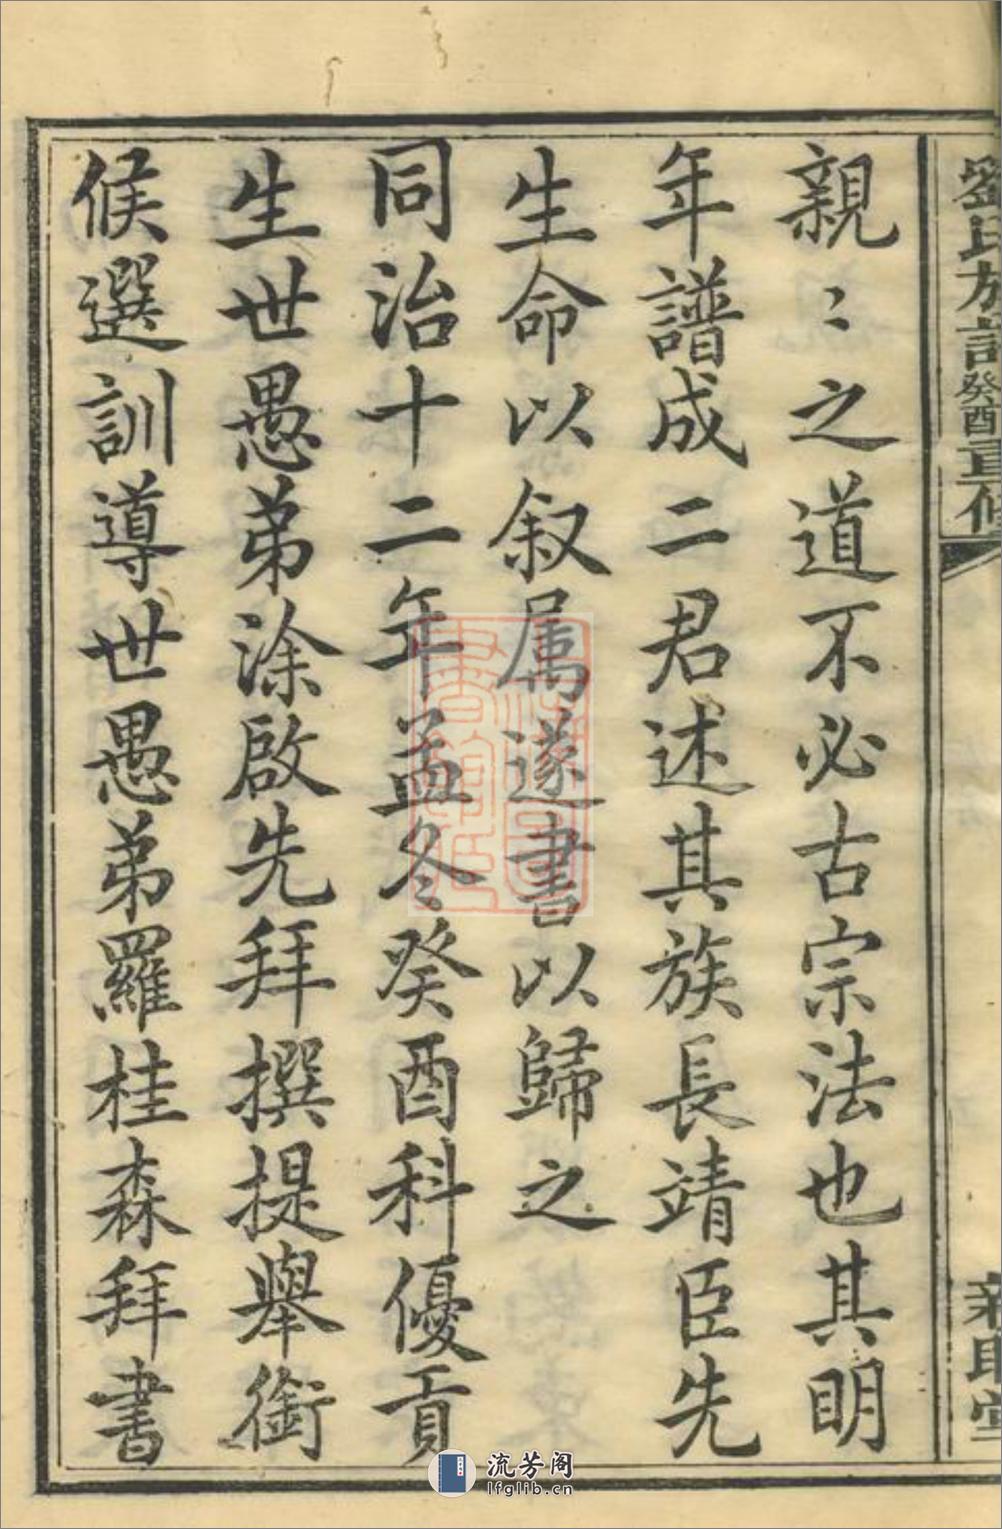 劉氏族譜癸酉重修
親〻之道不必古宗法也其明
年譜成二君述其族長靖臣先
生命以叙属遂書以歸之
同治十二年孟冬癸酉科優貢
生世愚弟涂啟先拜撰提舉銜
候選訓導世愚弟羅桂森拜書
流芳阁
lfglib.cn